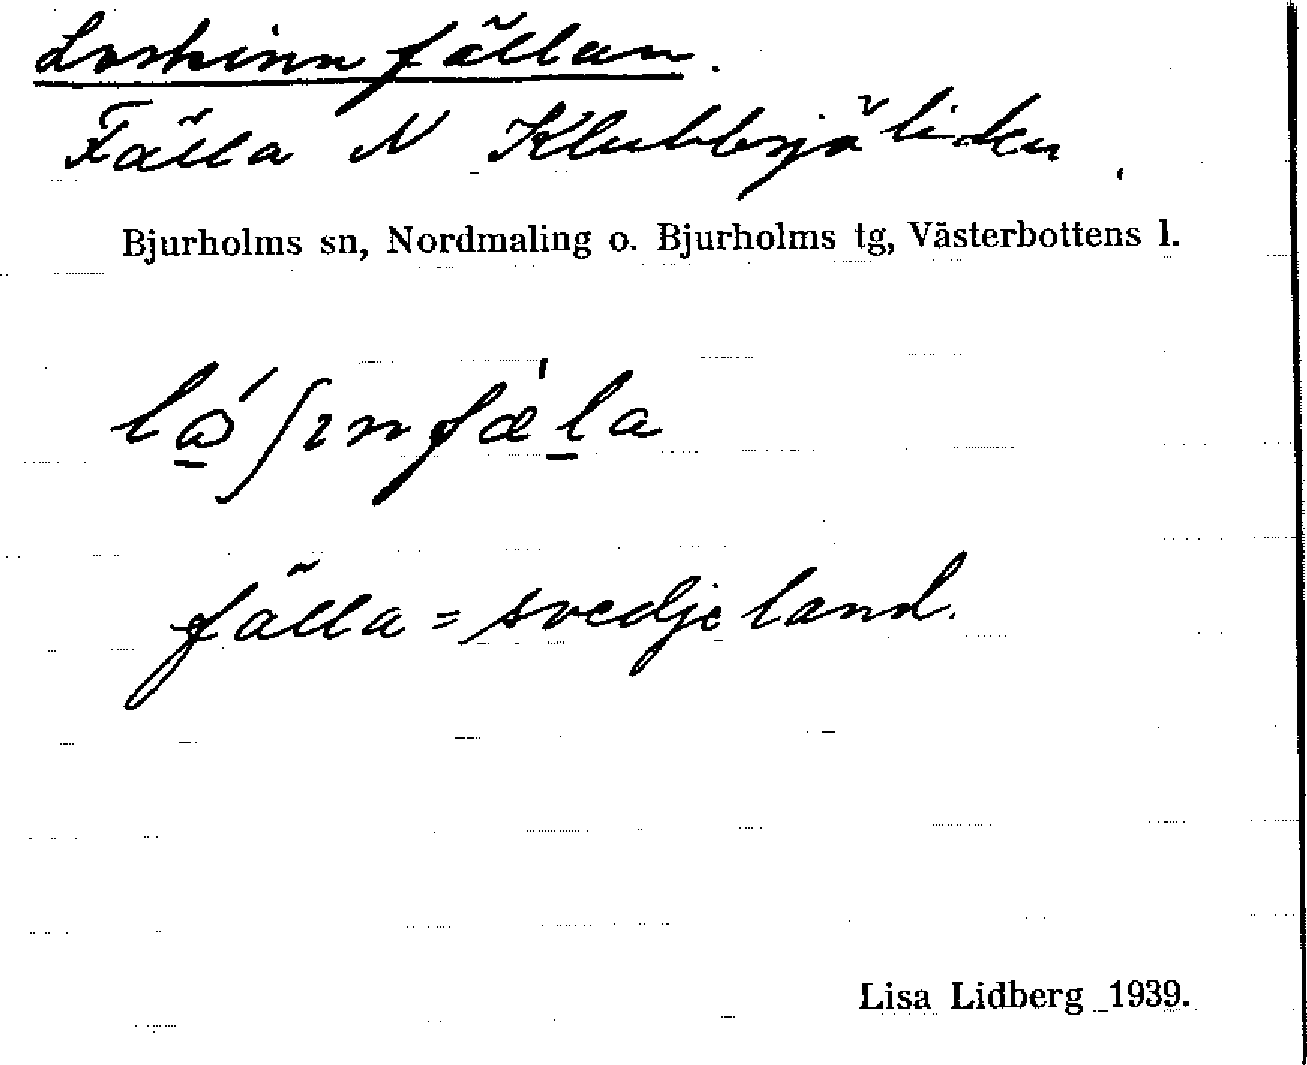 Loskinnfällan.
Fälla N Klubbsjöliden.
Bjurholms sn, Nordmaling o. Bjurholms tg, Västerbottens l.
lǻʃınfæ̍la
fälla = svedjeland.
Lisa Lidberg 1939.